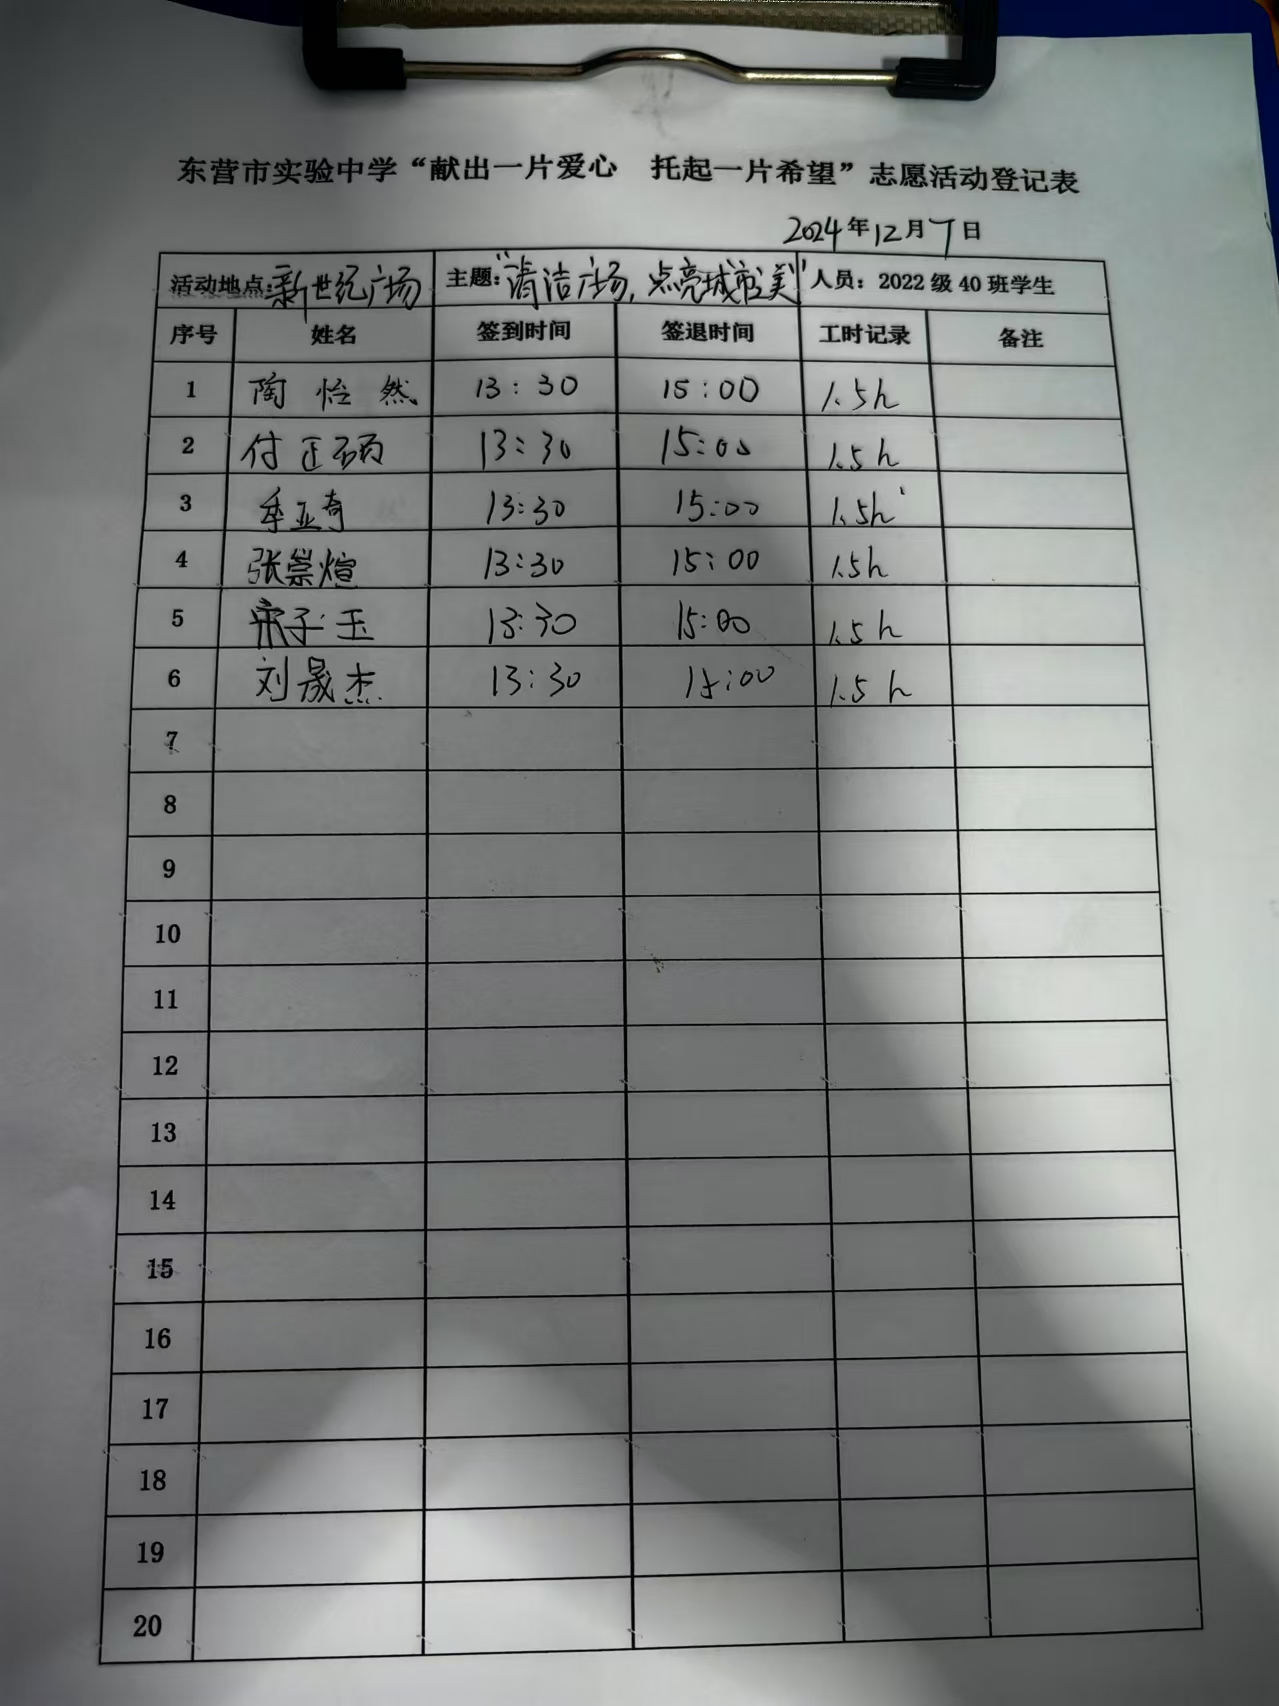 东营市实验中学“献出一片爱心 托起一片希望”志愿活动登记表
2024年12月7日
活动地点:新世纪广场 主题:“清洁广场,点亮城市美” 人员:2022级40班学生
序号 姓名 签到时间 签退时间 工时记录 备注
1 陶怡然 13:30 15:00 1.5h
2 付正硕 13:30 15:00 1.5h
3 牟亚奇 13:30 15:00 1.5h
4 张崇煊 13:30 15:00 1.5h
5 宋子玉 13:30 15:00 1.5h
6 刘晟杰 13:30 15:00 1.5h
7
8
9
10
11
12
13
14
15
16
17
18
19
20